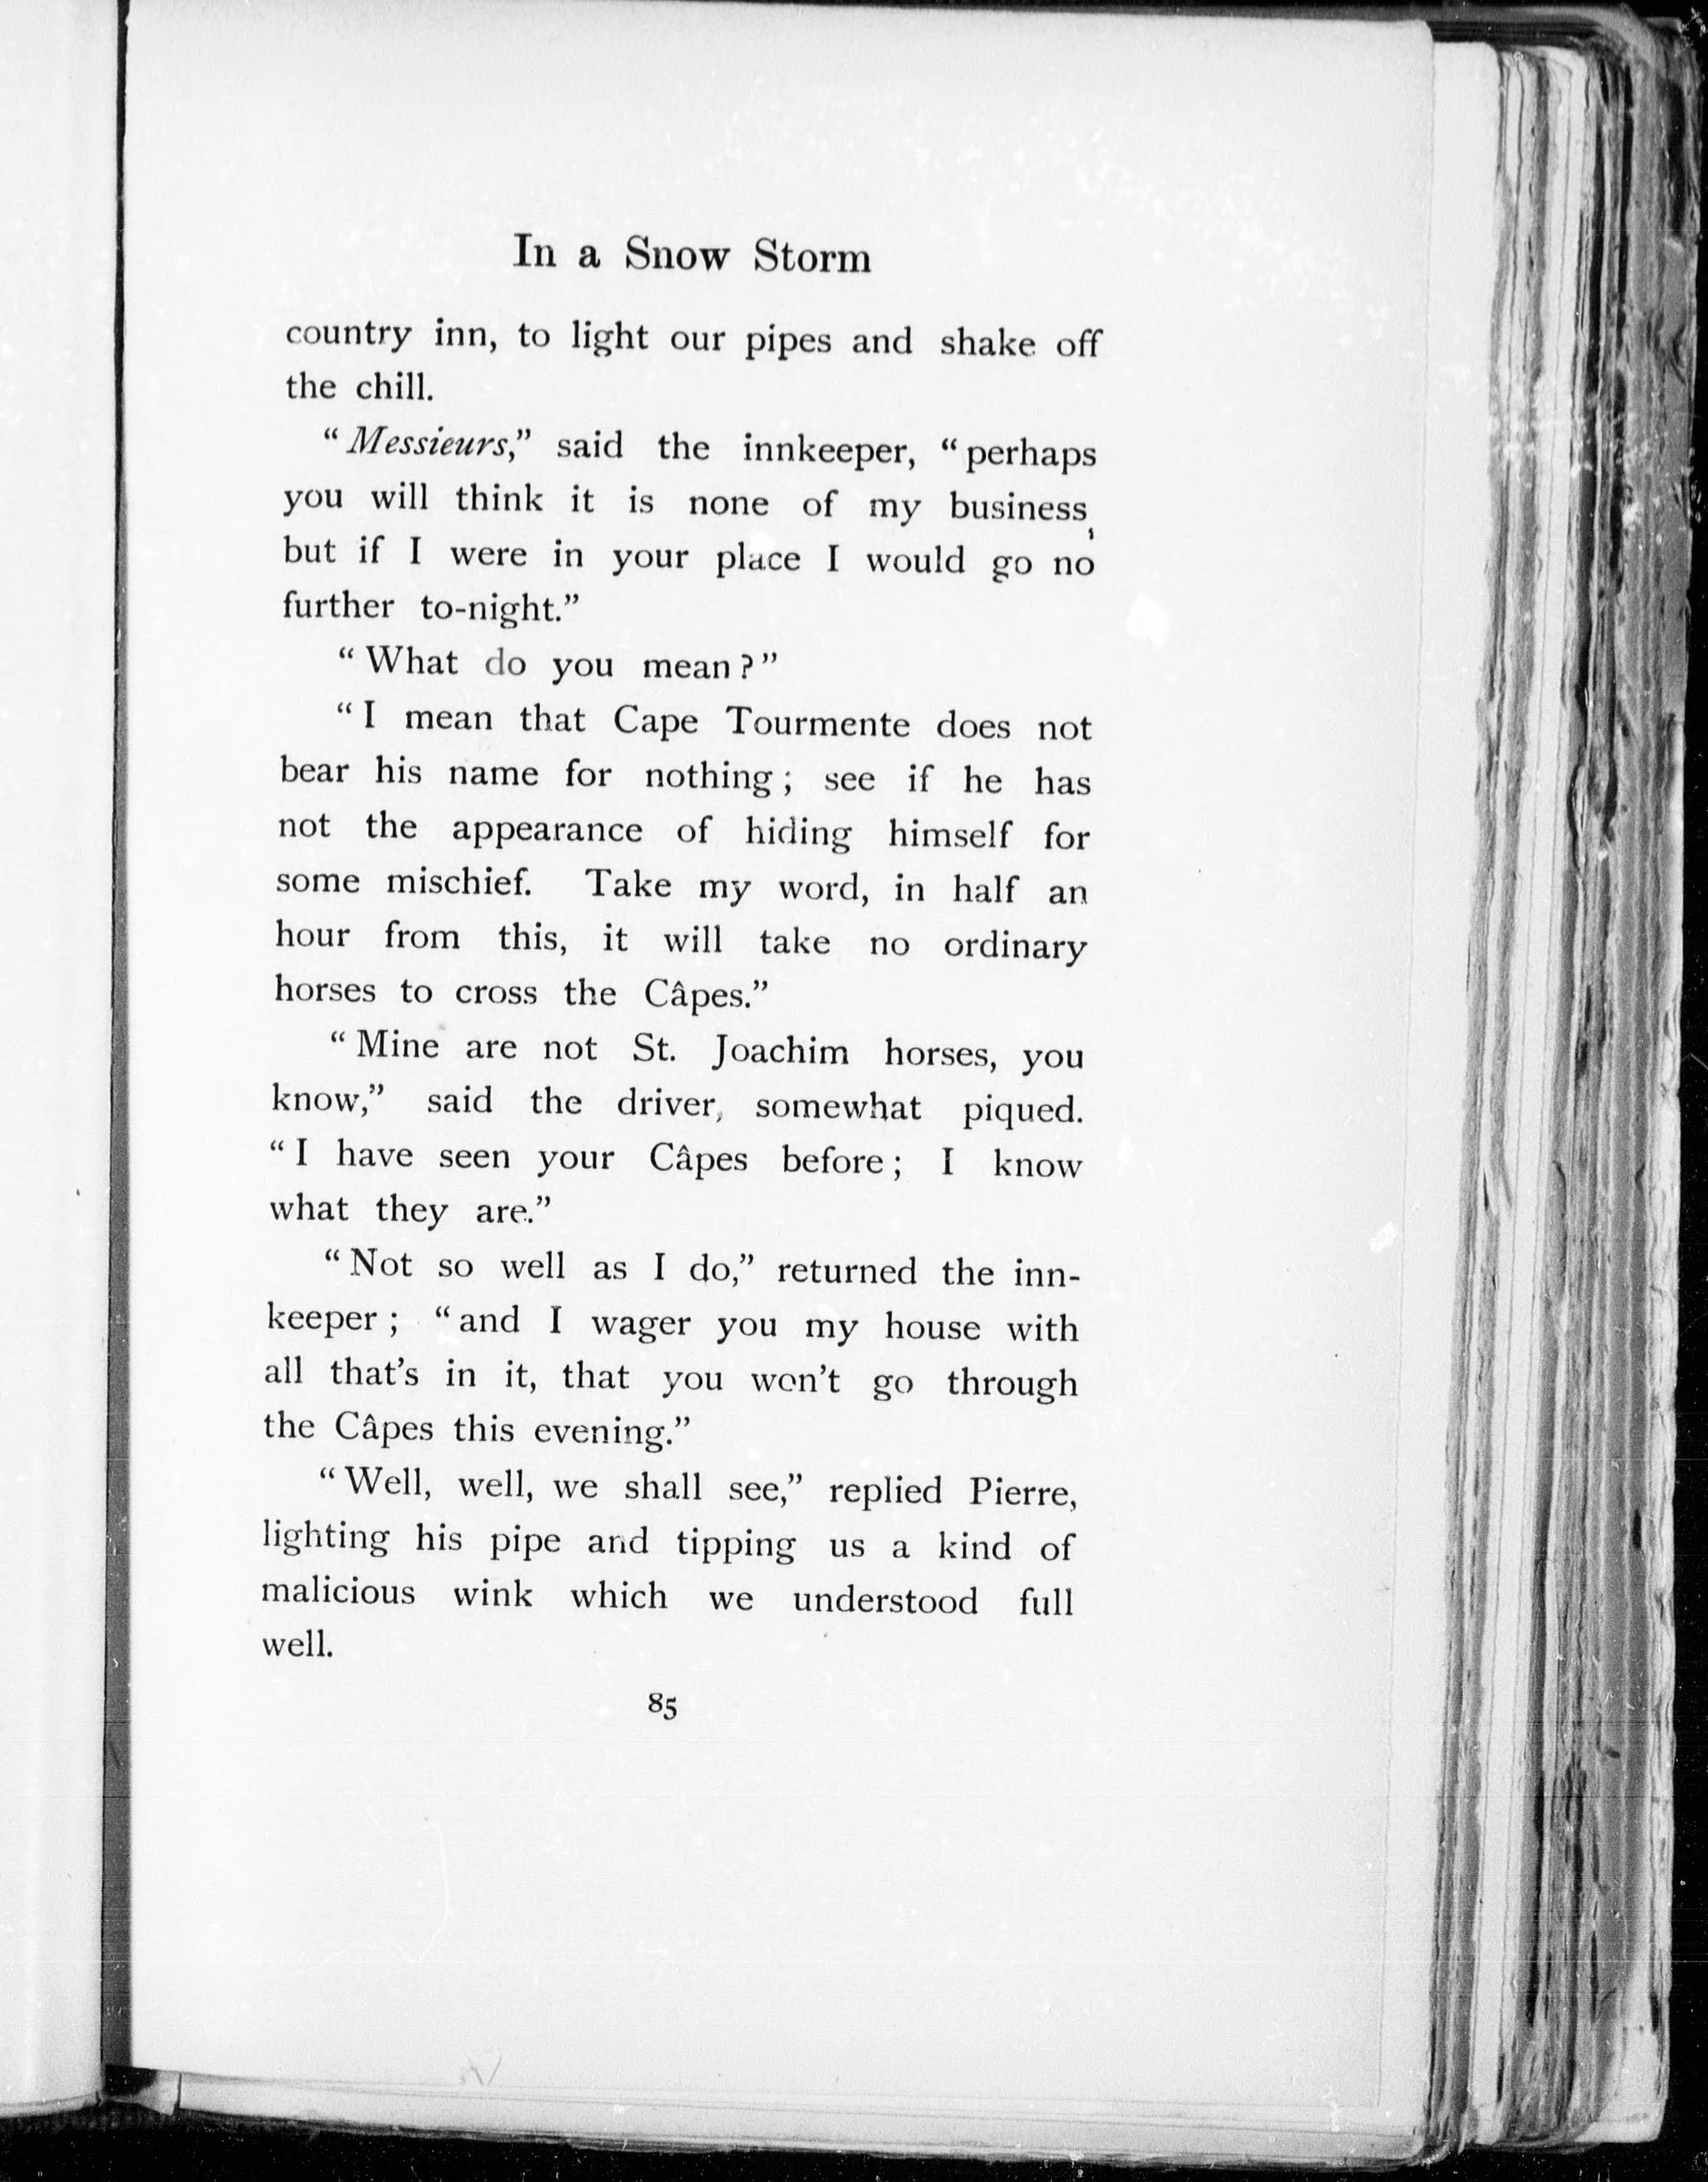 In a Snow Storm
country inn, to light our pipes and shake off
the chill.
“Messieurs,” said the innkeeper, “perhaps
you will think it is none of my business,
but if I were in your place I would go no
further to-night.”
“What do you mean?”
“I mean that Cape Tourmente does not
bear his name for nothing; see if he has
not the appearance of hiding himself for
some mischief. Take my word, in half an
hour from this, it will take no ordinary
horses to cross the Câpes.”
“Mine are not St. Joachim horses, you
know,” said the driver, somewhat piqued.
“I have seen your Câpes before; I know
what they are.”
“Not so well as I do,” returned the inn-
keeper; “and I wager you my house with
all that’s in it, that you won’t go through
the Câpes this evening.”
“Well, well, we shall see,” replied Pierre,
lighting his pipe and tipping us a kind of
malicious wink which we understood full
well.
85